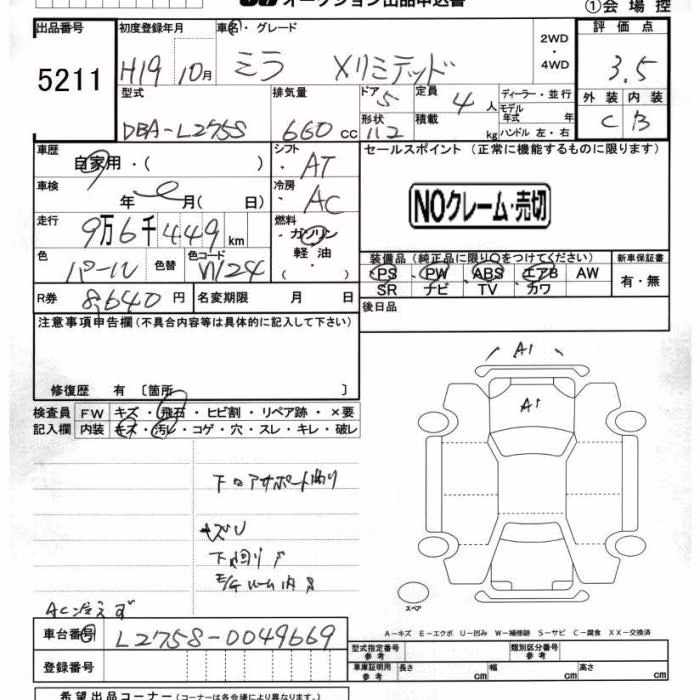 オークション出品申込書
①会場控
出品番号
5211
初度登録年月
H19 10月
車名・グレード
ミラ Xリミテッド
2WD
・
4WD
評価点
3.5
外装 内装
C B
型式
DBA-L275S
排気量
660 cc
ドア 5
形状
定員 4 人
積載 kg
ディーラー・並行
モデル年式 年
ハンドル 左・右
車歴
自家用・( )
シフト
AT
セールスポイント (正常に機能するものに限ります)
NOクレーム・売切
車検
年 月( 日)
冷房
AC
走行
9万6千449km
燃料
ガソリン
軽油
( ・ )
色
パール
色替
色コード
W24
装備品 (純正品に限り○をつけてください)
PS PW ABS エアB AW
SR ナビ TV カワ
新車保証書
有・無
R券 8,640円
名変期限 月 日
後日品
注意事項申告欄(不具合内容等は具体的に記入して下さい)
修復歴 有 〔箇所 〕
検査員
記入欄
FW キズ・飛石・ヒビ割・リペア跡・×要
内装 キズ・汚レ・コゲ・穴・スレ・キレ・破レ
A1
A1
下ロアサポート曲り
キズU
下回りサ
E/Gルーム内サ
AC冷えず
スペア
車台番号
L275S-0049669
登録番号
A-キズ E-エクボ U-凹み W-補修跡 S-サビ C-腐食 XX-交換済
型式指定番号
参考
類別区分番号
参考
車庫証明用
参考
長さ cm
幅 cm
高さ cm
希望出品コーナー (コーナーは各会場により異なります。)